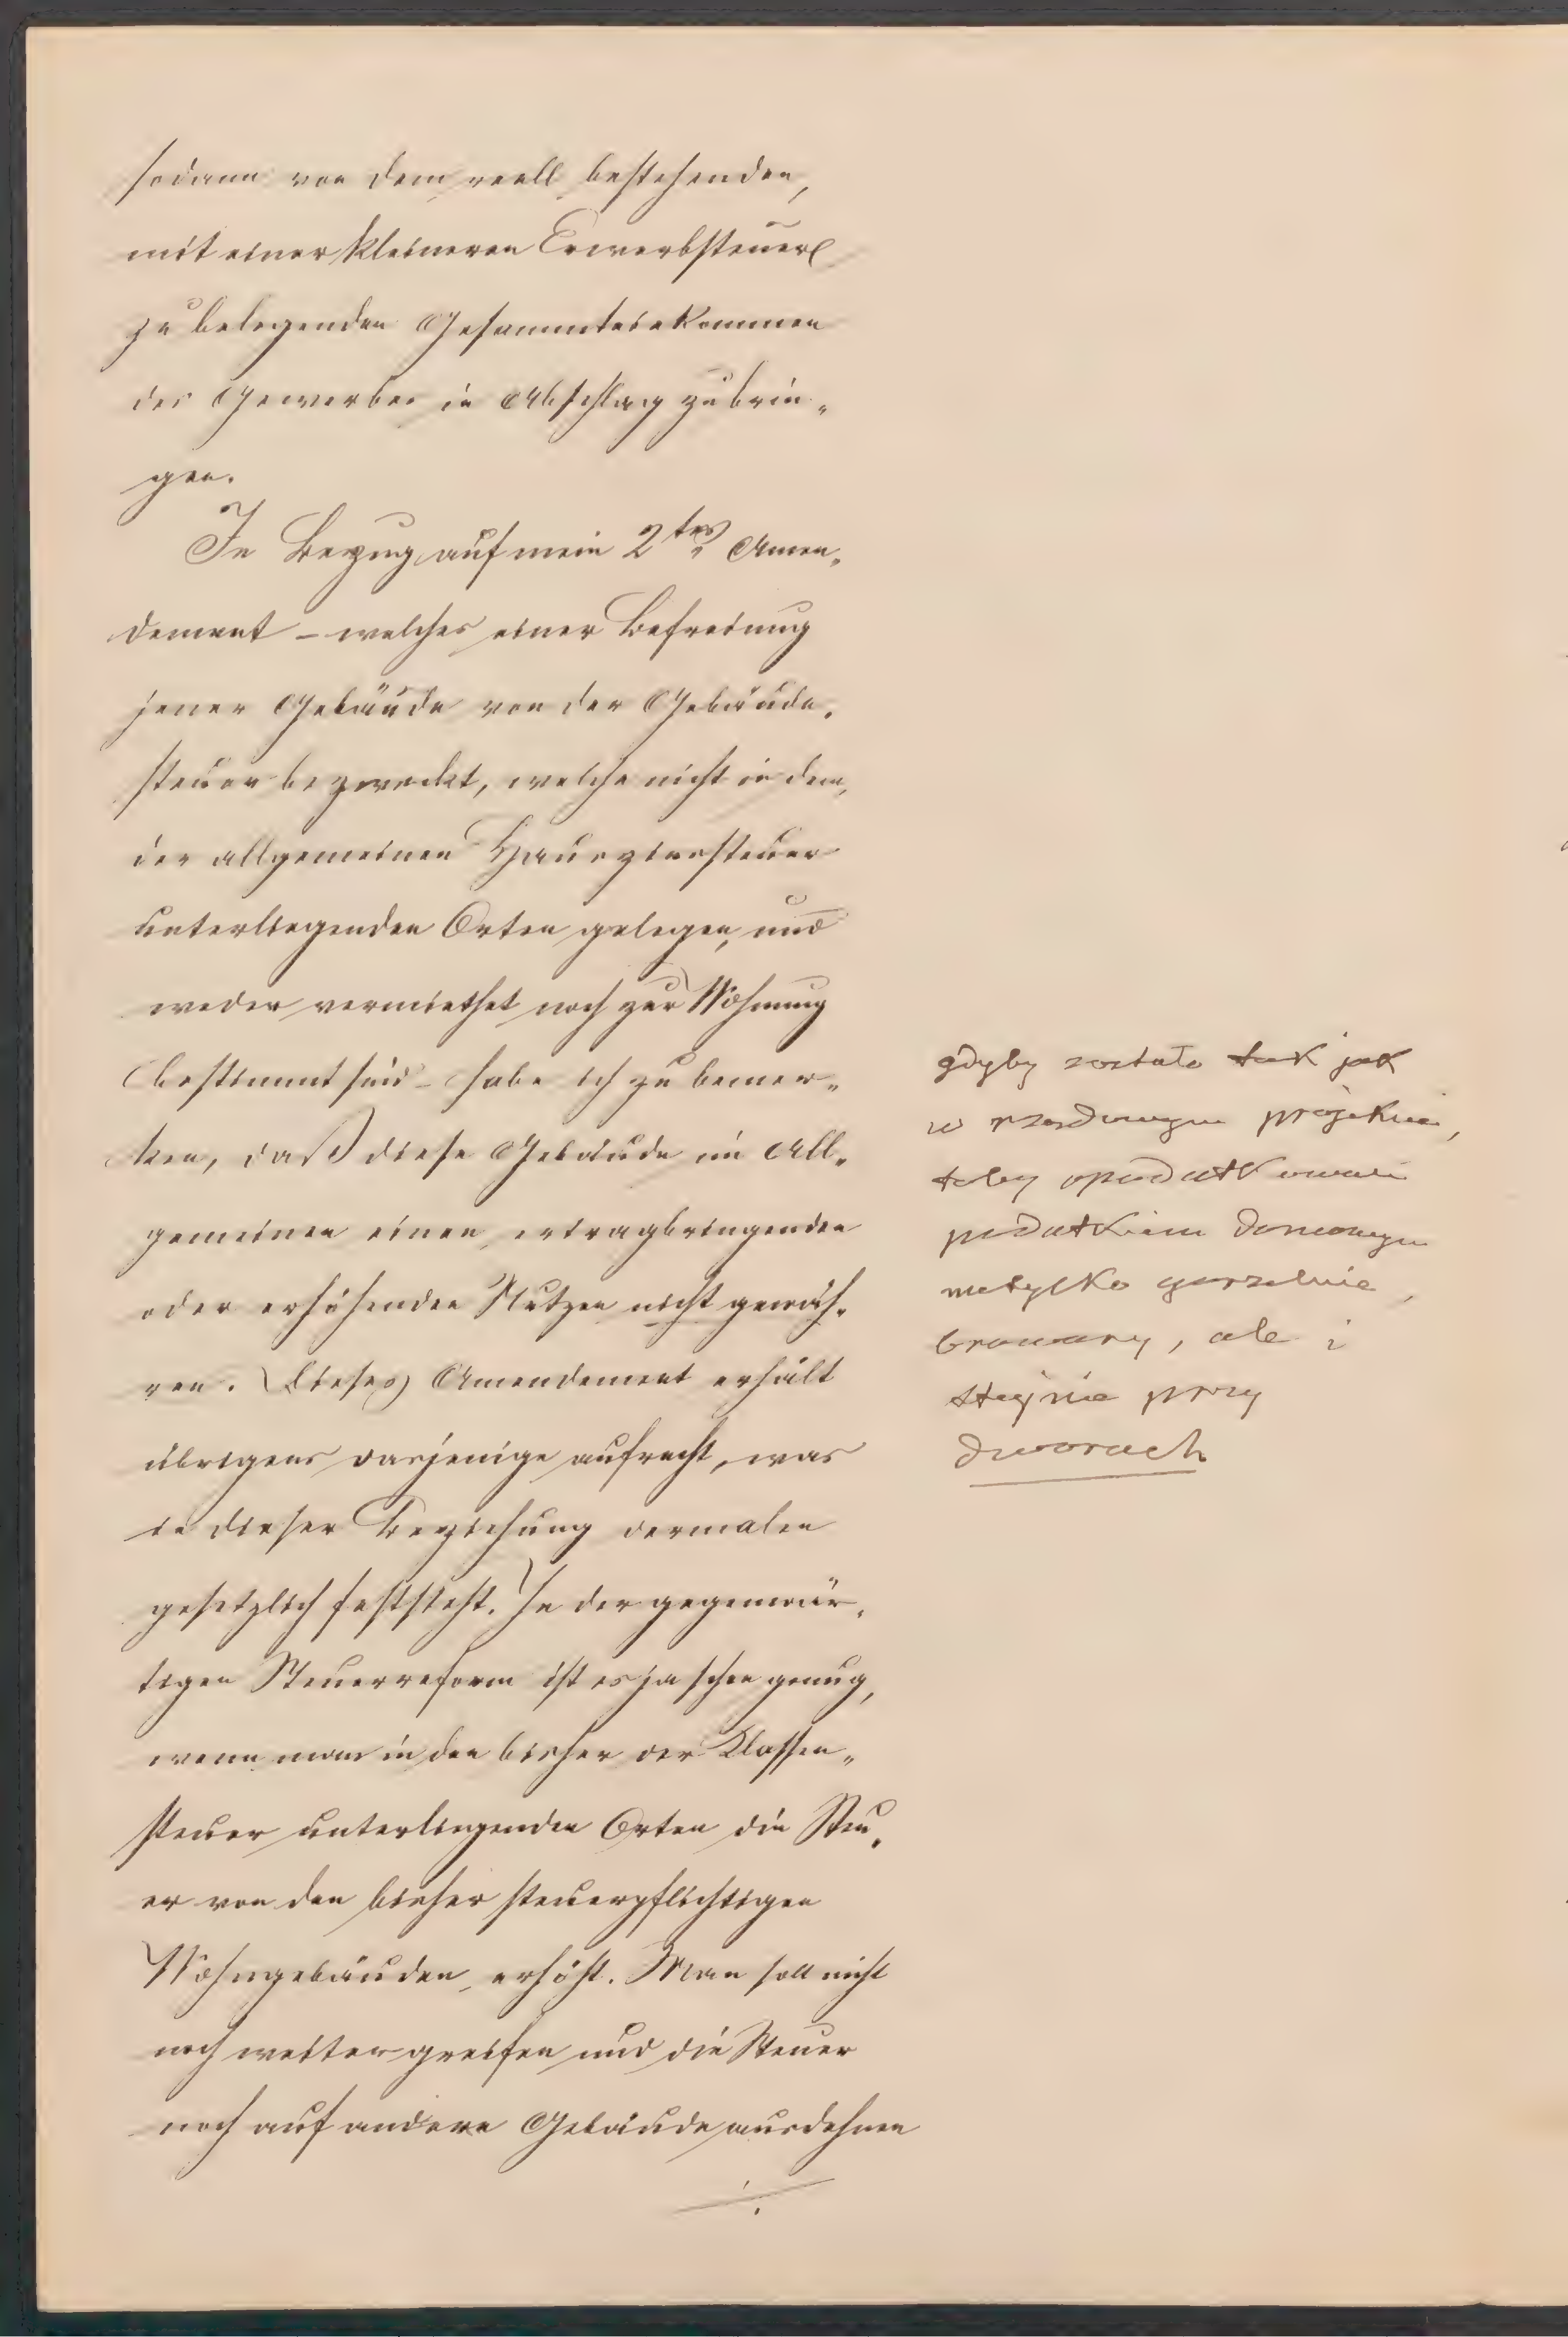 sodann von dem reell bestehenden,
mit einer kleineren Erwerbsteuer
zu belegenden Gesammteinkommen
des Gewerbes in Abschlag zu brin„
gen.
In Bezug auf mein 2tes Amen„
dement – welches einer Befreiung
jener Gebäude von der Gebäude„
steuer bezweckt, welche nicht in dem,
der allgemeinen Hauszinssteuer
unterliegenden Orten gelegen, und
weder vermiethet noch zur Wohnung
bestimmt sind – habe ich zu bemer„
ken, daß diese Gebäude im All„
gemeinen einen ertragbringenden
oder erhöhenden Nutzen nicht gewäh„
ren. Dieses Amendement erhält
übrigens dasjenige aufrecht, was
in dieser Beziehung dermalen
gesetzlich feststeht. In der gegenwär„
tigen Steuerreform ist es ja schon genug,
wenn man in den bisher der Klassen„
steuer unterliegenden Orten die Steu„
er von den bisher steuerpflichtigen
Wohngebäuden erhöht. Man soll nicht
noch weiter greifen und die Steuer
noch auf andere Gebäude ausdehnen
./.
gdyby zostało tak jak
w rządowym projekcie,
toby opodatkowali
podatkiem domowym
nietylko gorzelnie,
browary, ale i
stajnie przy
dworach